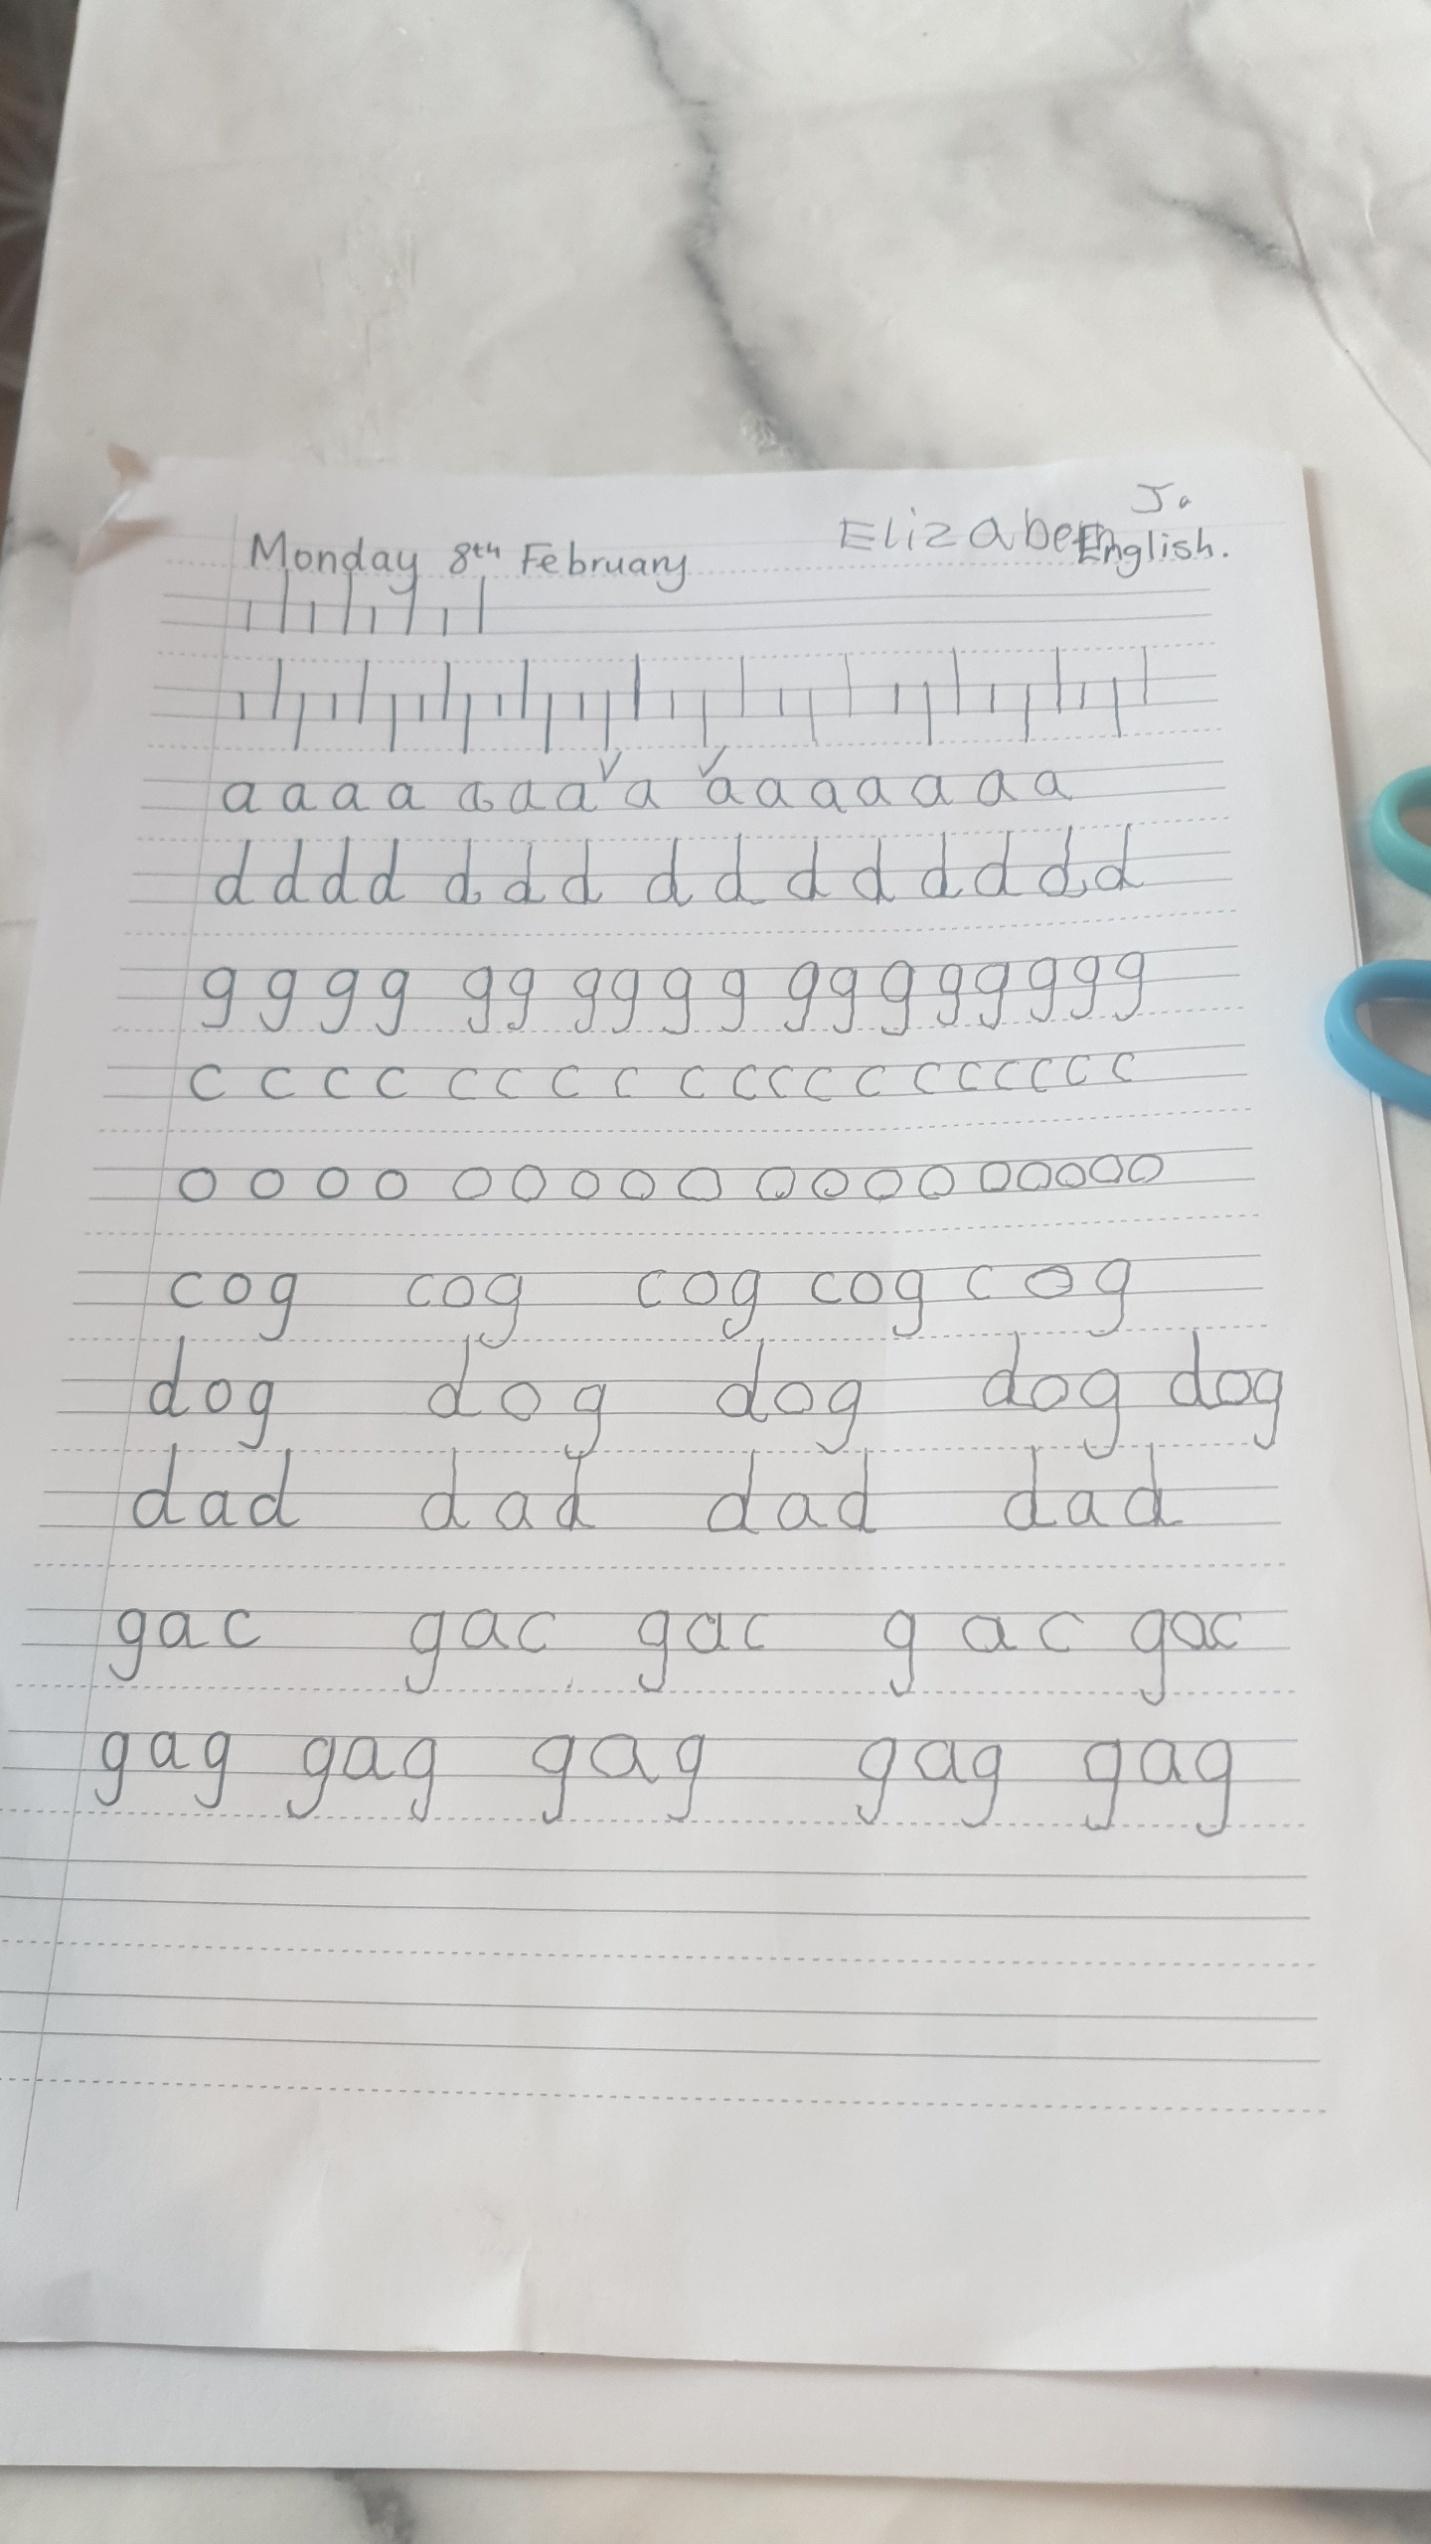 J.
Monday 8th February Elizabeth English.
a a a a a a a a a a a a a a a
d d d d d d d d d d d d d d d
g g g g g g g g g g g g g g g g g g
c c c c c c c c c c c c c c c c c c c
o o o o o o o o o o o o o o o o o o
cog cog cog cog cog
dog dog dog dog dog
dad dad dad dad
gac gac gac gac gac
gag gag gag gag gag